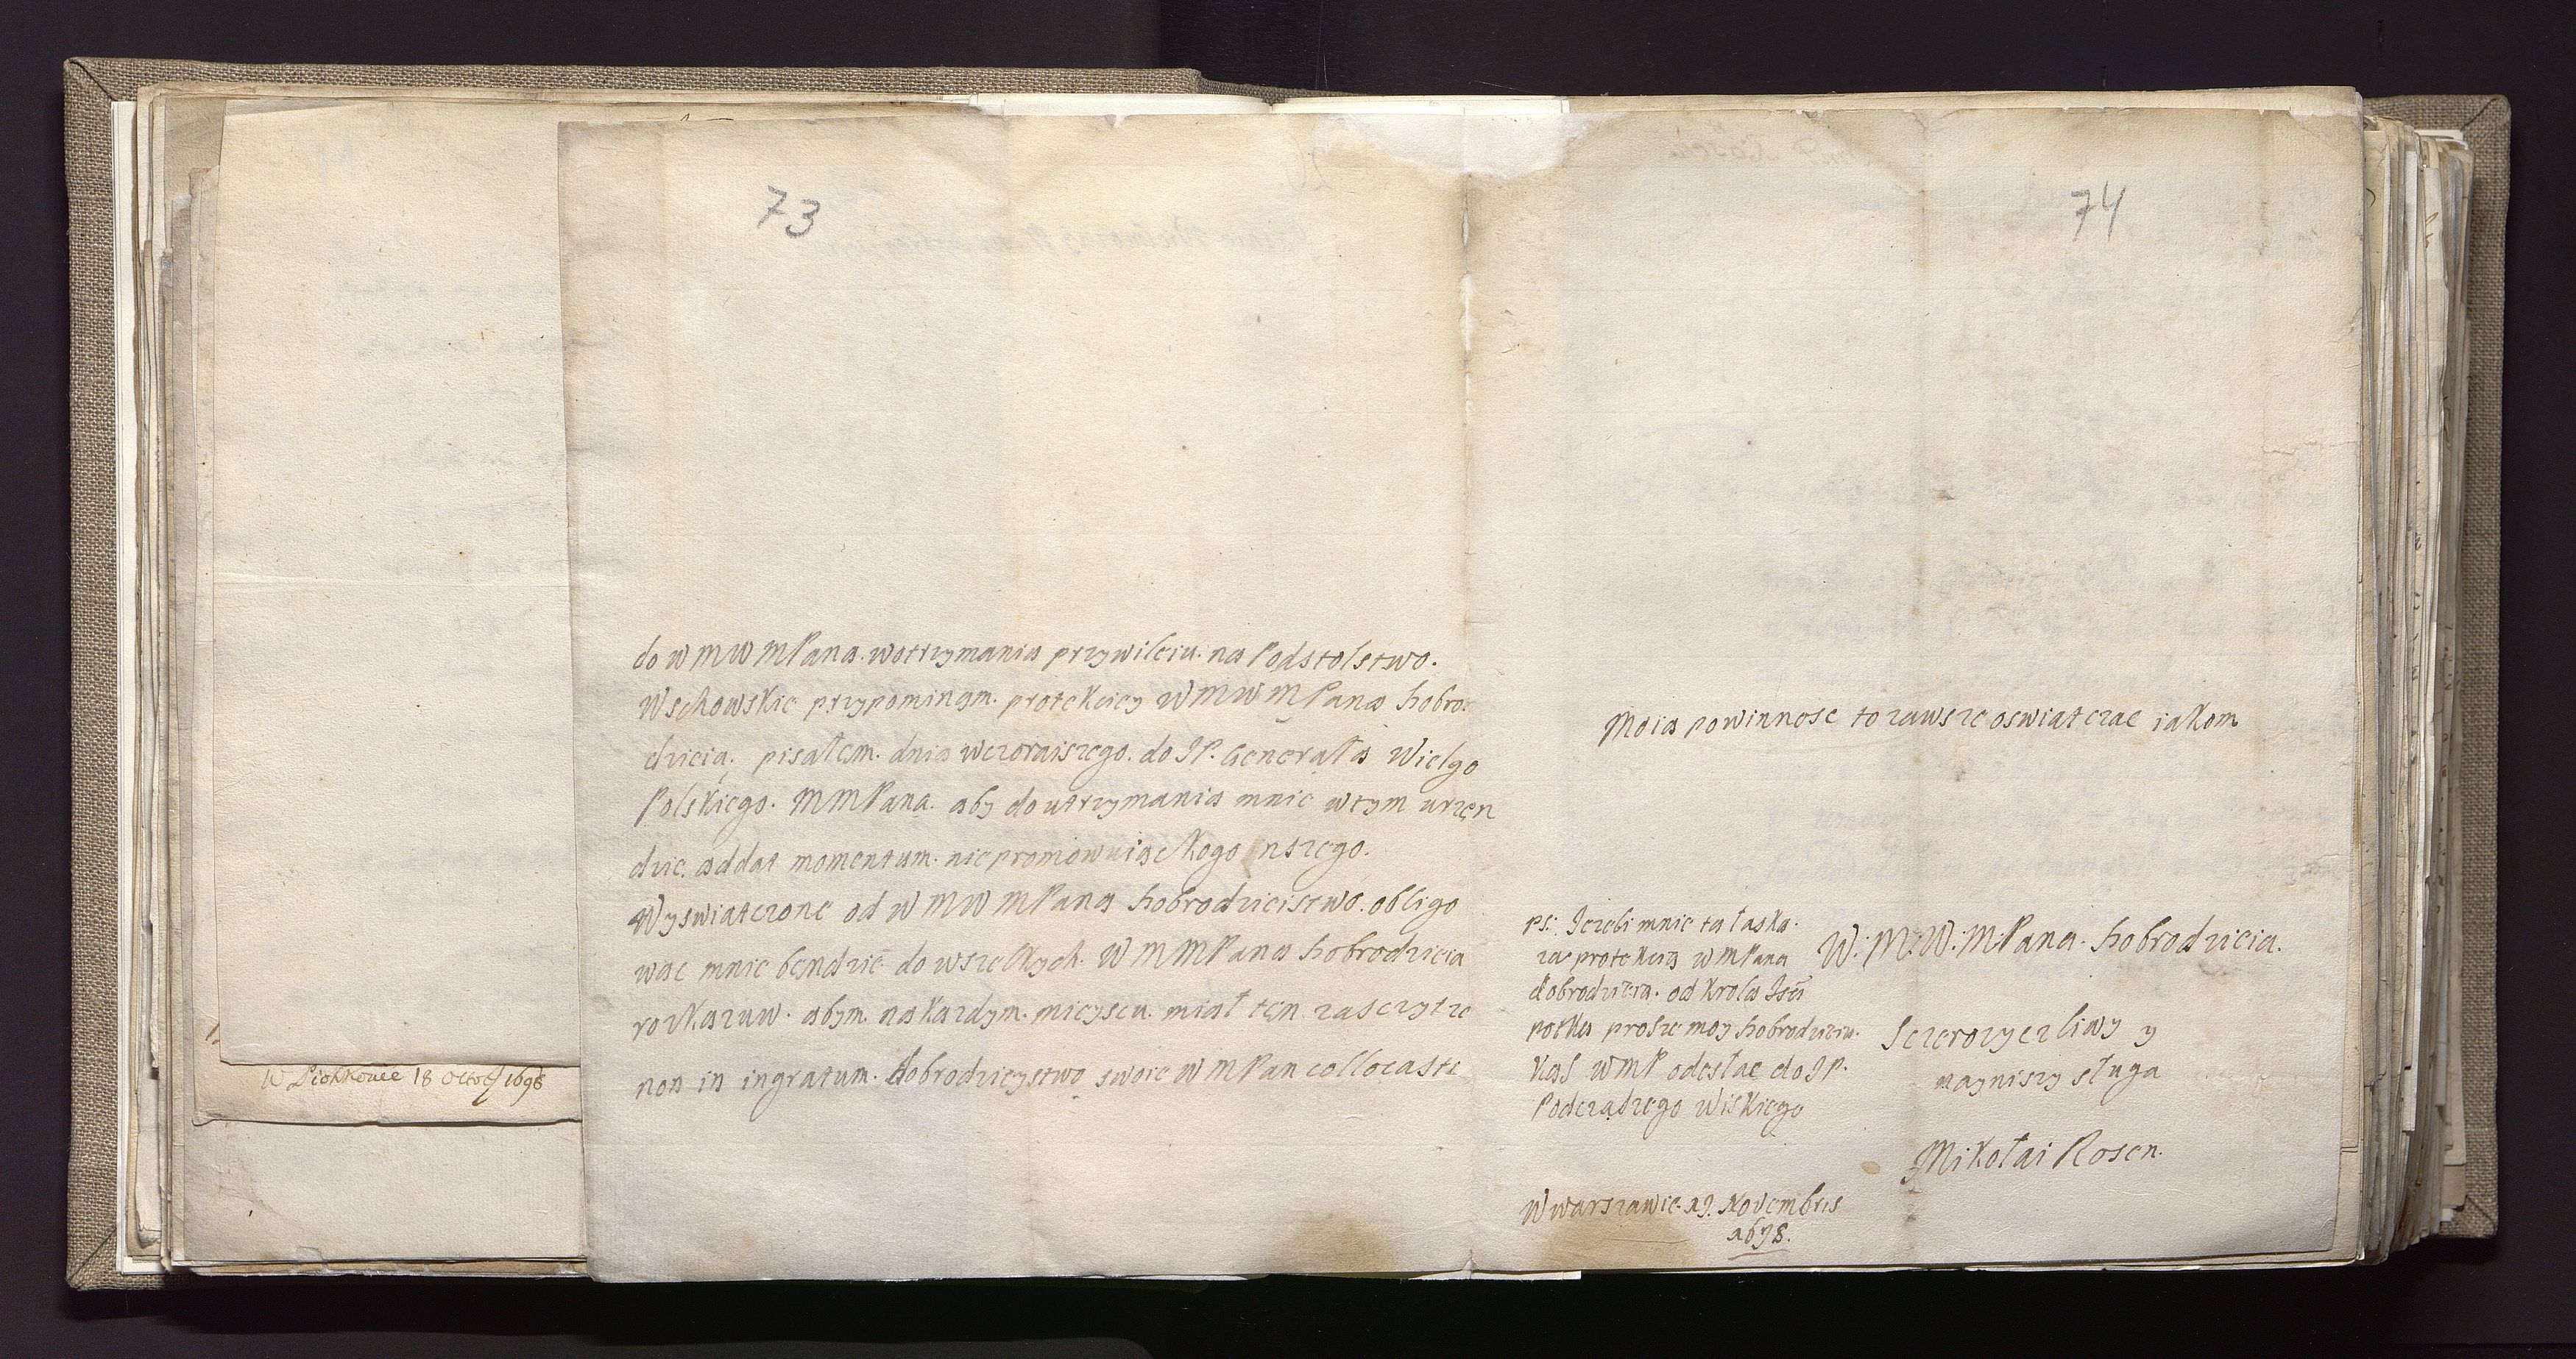 73
do W M W M Pana. wotrzymania przywileiu. na Podstolstwo.
Wschowskie przypominam. protekciey W M W M Pana Dobro
dzieia. pisałem. dnia wczoraiszego. do JP. Generała Wielgo
Polskiego. M M Pana. aby do utrzymania mnie wtym urzęn
dzie. addat momentum. nie promowuiąc kogo inszego.
Wyswiatczone od W M W M Pana Dobrodzieistwo. obligo
wac mnie bendzie do wszelkych. W M M Pana Dobrodzieia
rozkazuw. abym. na kazdym. mieyscu. miał ten zasczyt ze
non in ingratum. Dobrodzieystwo swoie W M Pan collocaste
W Piotrkowie 18 Octobr 1698
74
Moia powinnosc to zawsze oswiatczac iakom
W: M: W: M: Pana. Dobrodzieia.
Sczerozyczliwy y
nayniszy sługa
Mikołai Rosen.
PS: Jezeli mnie ta łaska.
za protekcią W M Pana
dobrodzieia. od Krola Jsci
potka prosze moy Dobrodzieiu.
Kas W M P odesłac do JP.
Podczaszego Wiskiego
W Warszawie. 19. Novembris
1698.